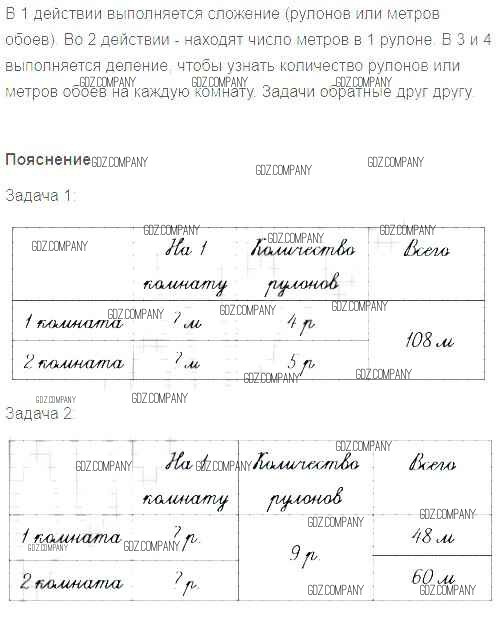 В 1 действии выполняется сложение (рулонов или метров
обоев). Во 2 действии - находят число метров в 1 рулоне. В 3 и 4
выполняется деление, чтобы узнать количество рулонов или
GDZ.COMPANY GDZ.COMPANY GDZ.COMPANY
метров обоев на каждую комнату. Задачи обратные друг другу.
Пояснение
GDZ.COMPANY GDZ.COMPANY GDZ.COMPANY
Задача 1:
GDZ.COMPANY GDZ.COMPANY GDZ.COMPANY
На 1 Количество Всего
комнату рулонов
GDZ.COMPANY GDZ.COMPANY
1 комната ? м 4 р
108 м
2 комната ? м 5 р
GDZ.COMPANY GDZ.COMPANY
GDZ.COMPANY GDZ.COMPANY
Задача 2:
GDZ.COMPANY
На 1 Количество Всего
GDZ.COMPANY GDZ.COMPANY GDZ.COMPANY
комнату рулонов
GDZ.COMPANY GDZ.COMPANY
1 комната ? р. 48 м
9 р.
GDZ.COMPANY GDZ.COMPANY
2 комната ? р. 60 м
GDZ.COMPANY GDZ.COMPANY